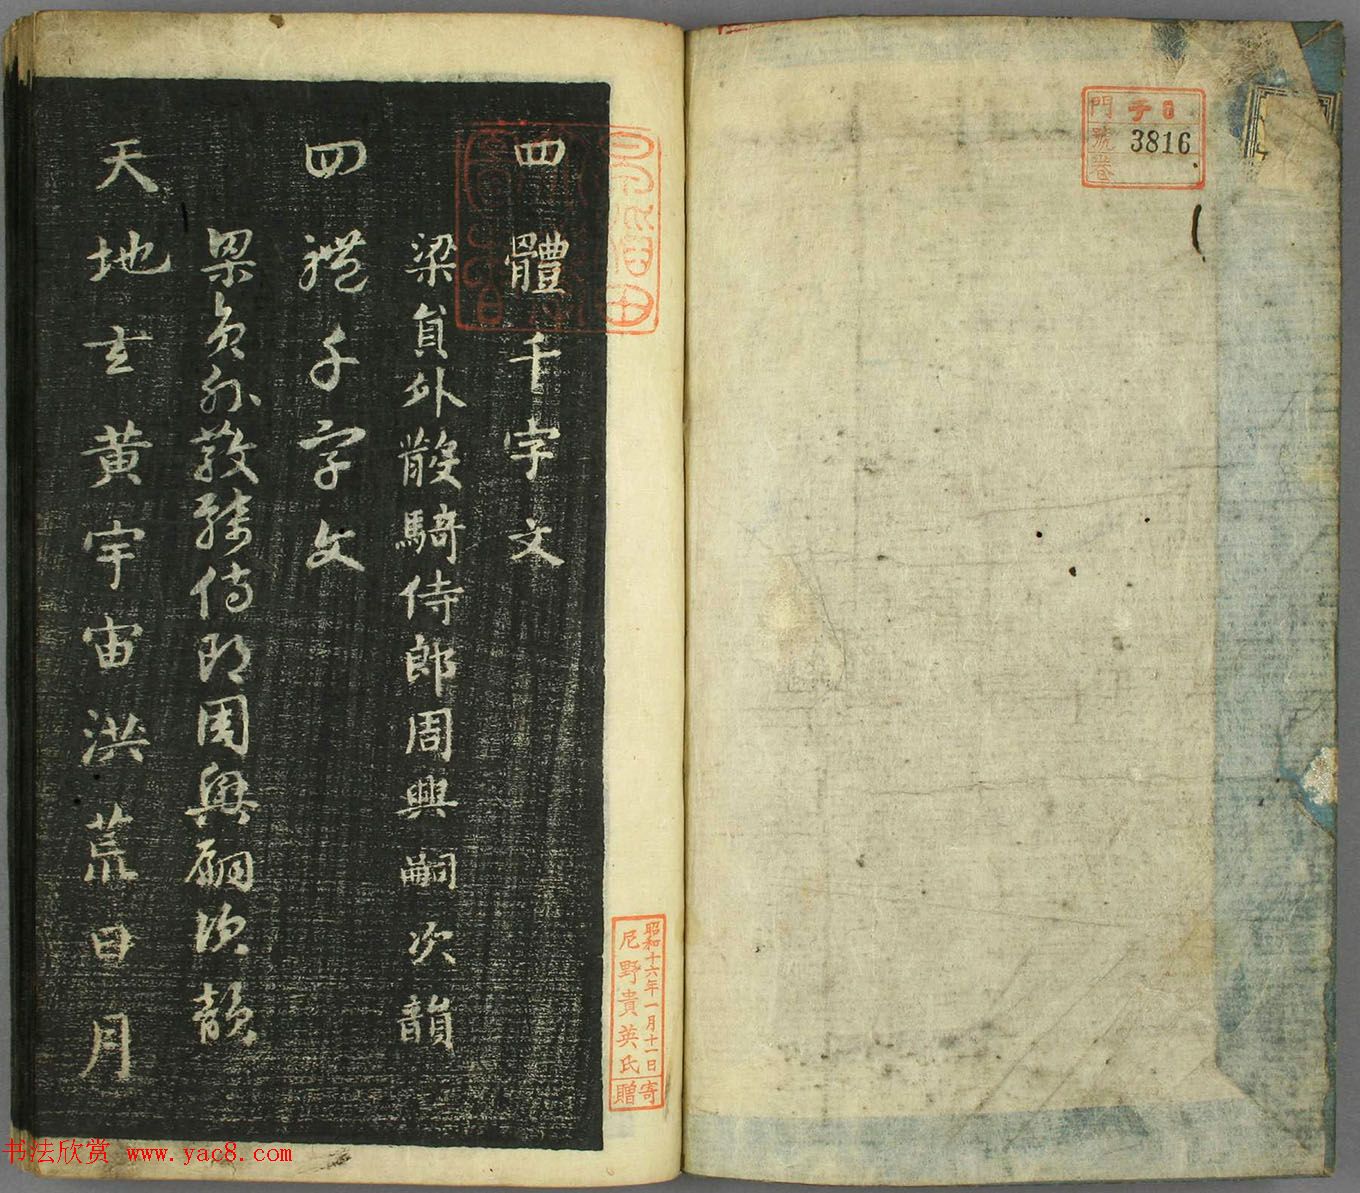 四體千字文
梁貟外散騎侍郎周興嗣次韻
四體千字文
梁貟外散騎侍郎周興嗣次韻
天地玄黄宇宙洪荒日月
子
門號卷
3816
早稲田
昭和十六年一月十一日
尼野貴英氏
寄贈
书法欣赏 www.yac8.com